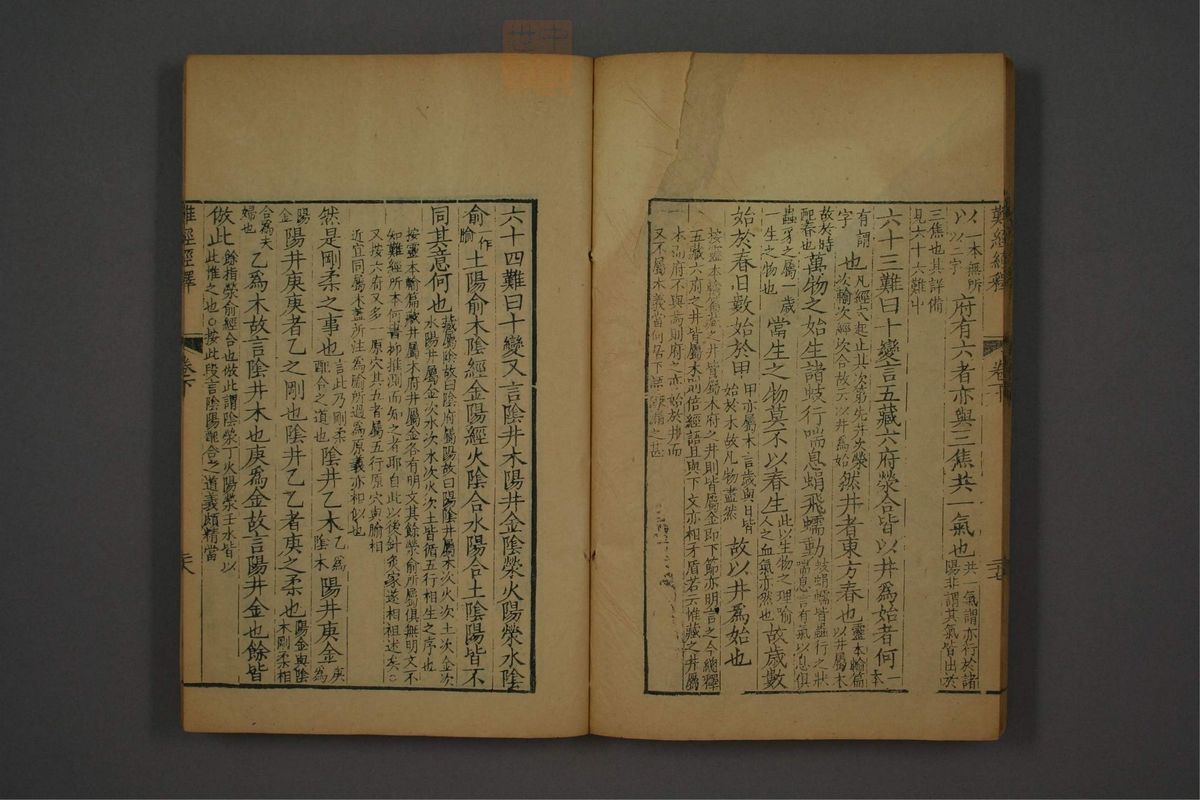 難經經釋
卷下
以一本無所
以以一字
府有六者亦與三焦共一氣也
共一氣謂亦行於諸
陽非謂其氣皆出於
三焦也具詳備
見六十六難中
六十三難曰十變言五藏六府滎合皆以井為始者何
一本
有謂
字
也
凡經穴起止其次第先井次滎
次輸次經次合故云以井為始
然井者東方春也
靈本輸篇
以井屬木
故於時
配春也
萬物之始生諸蚑行喘息蜎飛蠕動
蚑蜎蠕皆蟲行之狀
喘息言有氣以息俱
蟲豸之屬一歲
一生之物也
當生之物莫不以春生
此以生物之理喻
人之血氣亦然也
故歲數
始於春日數始於甲
甲亦屬木言歲與日皆
始於木故凡物盡然
故以井為始也
按靈本輸篇藏之井皆屬木府之井則皆屬金即下節亦明言之今總釋
五藏六府之井皆屬木則倍經語且與下文亦相矛盾若云惟藏之井屬
木則府不與焉則府之亦始於井而
又不屬木義當何居下語
六十四難曰十變又言陰井木陽井金陰滎火陽滎水陰
俞
作
腧
土陽俞木陰經金陽經火陰合水陽合土陰陽皆不
同其意何也
藏屬陰故曰陰府屬陽故曰陽陰井屬木次火次土次金次
水陽井屬金次水次木次火次土皆循五行相生之序也
按靈本輸篇藏井屬木府井屬金各有明文其餘滎俞所屬俱無明文不
知難經所本何書抑推測而知之者耶自此以後針灸家遂相祖述矣○
又按六府又多一原穴其五者屬五行原穴與腧相
近宜同屬木蓋所注為腧所過為原義亦相似也
然是剛柔之事也
言此乃剛柔
配合之道也
陰井乙木
乙為
陰木
陽井庚金
庚
為
陽
金
陽井庚庚者乙之剛也陰井乙乙者庚之柔也
陽金與陰
木剛柔相
合為夫
婦也
乙為木故言陰井木也庚為金故言陽井金也餘皆
倣此
餘指滎俞經合也倣此謂陰滎丁火陽滎壬水皆以
此推之也○按此段言陰陽配合之道義頗精當
難經經釋
卷下